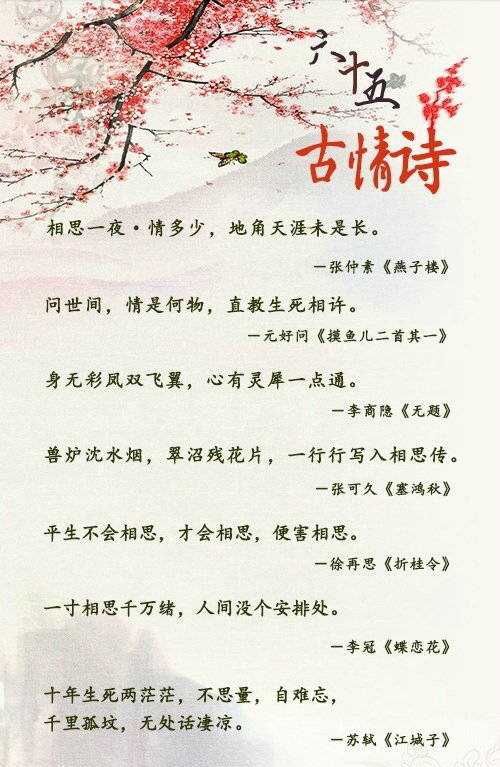 六十五
古情诗
相思一夜·情多少，地角天涯未是长。
—张仲素《燕子楼》
问世间，情是何物，直教生死相许。
—元好问《摸鱼儿二首其一》
身无彩凤双飞翼，心有灵犀一点通。
—李商隐《无题》
兽炉沈水烟，翠沼残花片，一行行写入相思传。
—张可久《塞鸿秋》
平生不会相思，才会相思，便害相思。
—徐再思《折桂令》
一寸相思千万绪，人间没个安排处。
—李冠《蝶恋花》
十年生死两茫茫，不思量，自难忘，
千里孤坟，无处话凄凉。
—苏轼《江城子》